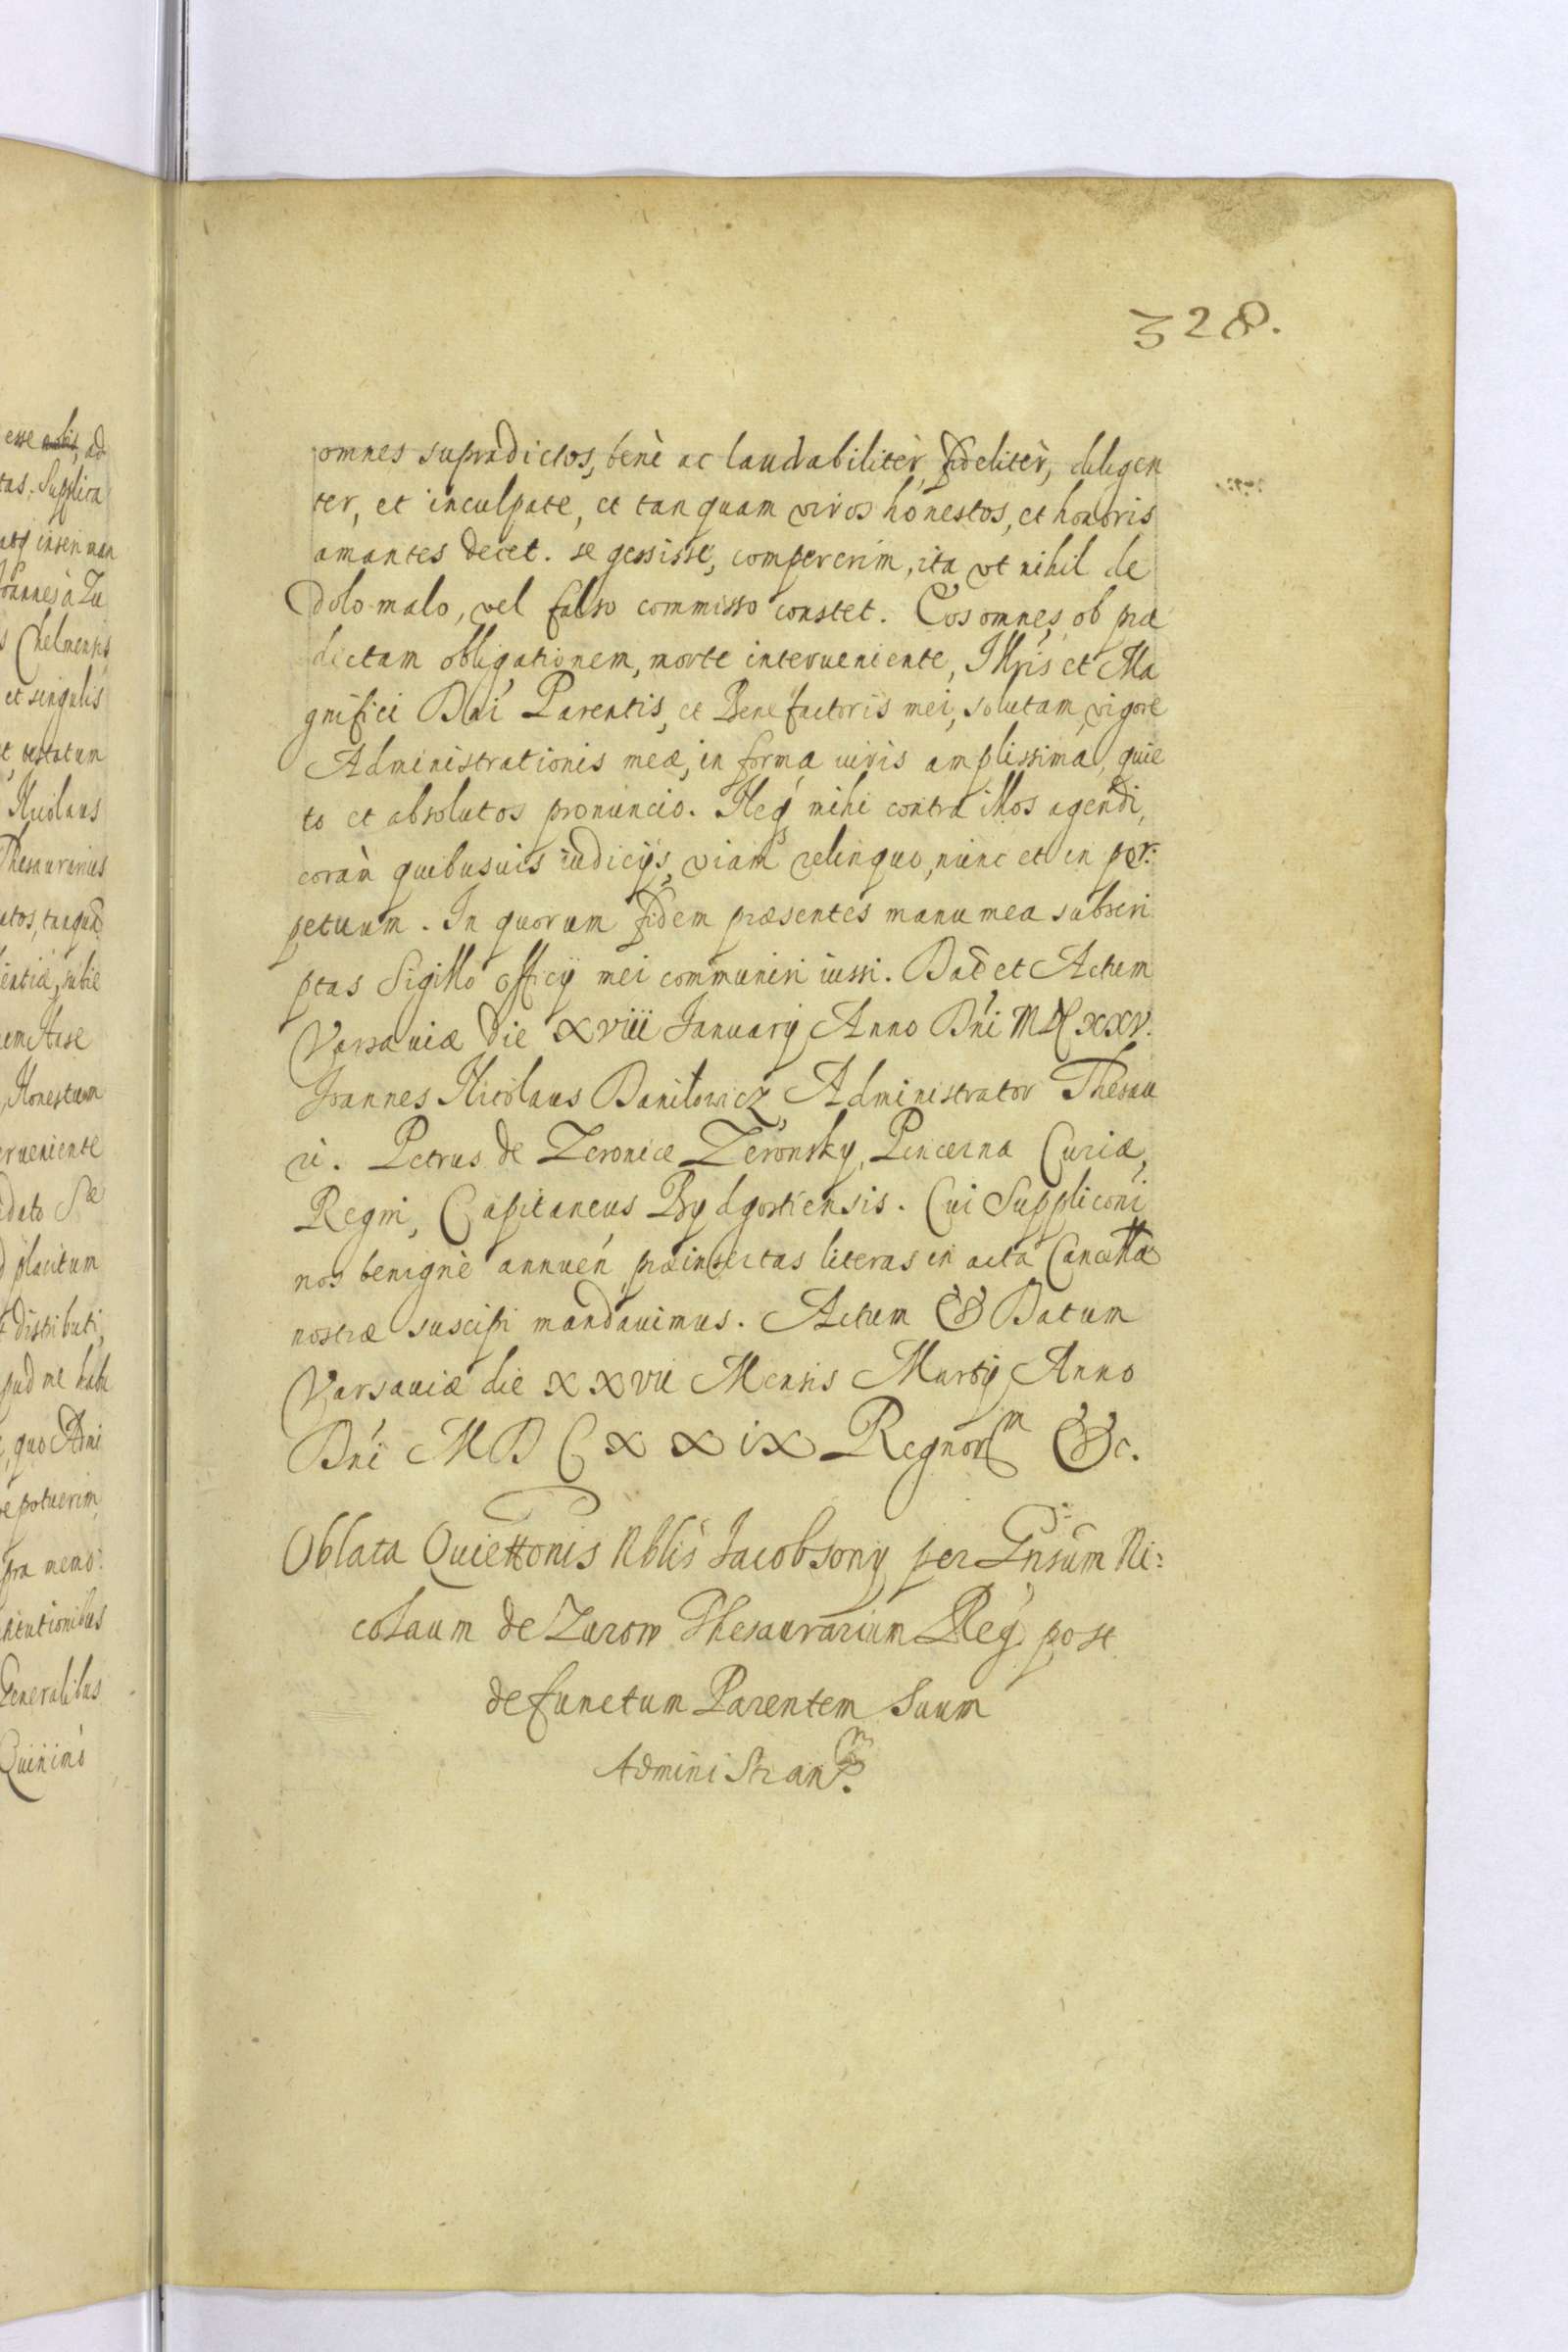 328.
omnes supradictos, benè ac laudabilitèr, fidelitèr, diligen
ter, et inculpate, et tanquam viros honestos, et honoris
amantes decet. se gessisse, compererim, ita vt nihil de
dolo malo, vel falso commisso constet. Eos omnes, ob præ
dictam obligationem, morte interueniente, Illris et Ma
gnifici Dni Parentis, et Benefactoris mei, solutam, vigore
Administrationis meæ, in forma iuris amplissima, quie
to et absolutos pronuncio. Neq mihi contra illos agendi,
coràm quibusuis iudicijs, viam relinquo, nunc et in per:
petuum. In quorum fidem præsentes manu mea subscri
ptas Sigillo officij mei communiri iussi. Dat et Actum
Varsauiæ die XVIII Januarij Anno Dni MDCXXV.
Joannes Nicolaus Daniłowicz, Administrator Thesau
ri. Petrus de Zeronice Zeronsky, Pincerna Curiæ,
Regni, Capitaneus Bydgostiensis. Cui Suppliconi
nos benignè annuen, præinsertas literas in acta Cancellæ
nostræ suscipi mandauimus. Actum & Datum
Varsauiæ die XXVII Mensis Martij Anno
Dni MDCXXIX Regnorm &c.
Oblata Quiettonis Nblis Jacobsony per Gnsum Ni:
colaum de Zurow Thesaurarium Reg post
defunctum Parentem Suum
esse ad
tas. Supplica
Joannes à Zu
s Chelmensis
et singulis
t testatum
Nicolaus
Thesaurarius
Honestum
erueniente
dato Sæ
placitum
t distributi,
pud me habe
e potuerim,
Generalibus